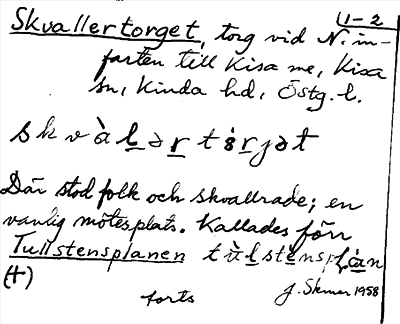 1-2
Skvallertorget, torg vid N. in-
farten till Kisa me, Kisa
sn, Kinda hd, Östg. l.
skvàḷərtȯrjət
Där stod folk och skvallrade; en
vanlig mötesplats. Kallades förr
Tullstensplanen tùlstensplan
(+)
forts J. Skener 1958